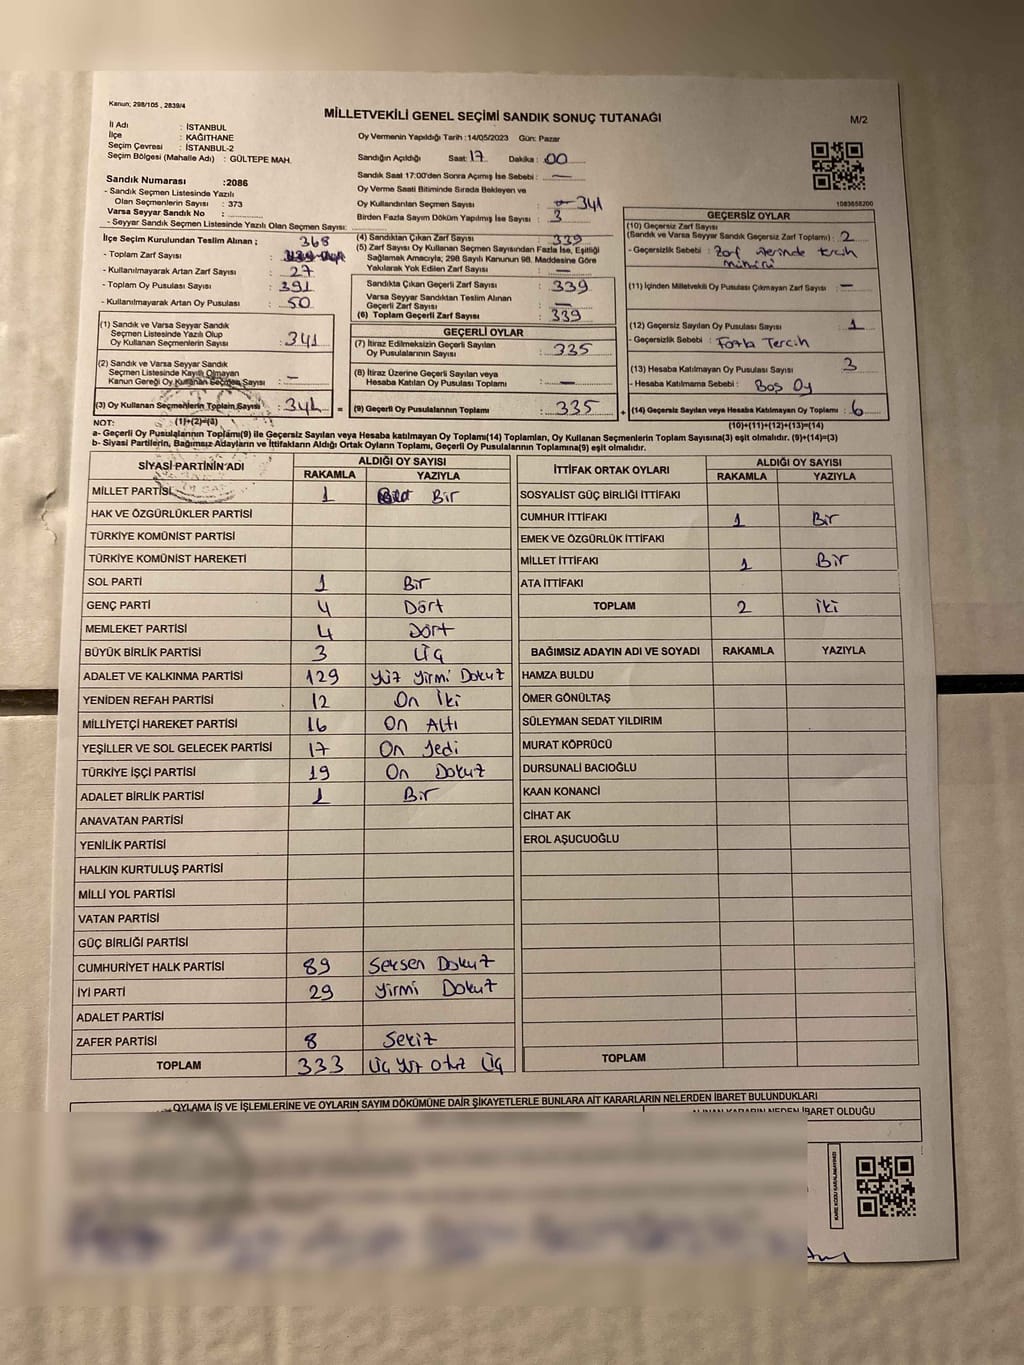 Kanun; 298/105 , 2839/4
MİLLETVEKİLİ GENEL SEÇİMİ SANDIK SONUÇ TUTANAĞI
M/2
İl Adı : İSTANBUL
İlçe : KAĞITHANE
Seçim Çevresi : İSTANBUL-2
Seçim Bölgesi (Mahalle Adı) : GÜLTEPE MAH.
Sandık Numarası :2086
- Sandık Seçmen Listesinde Yazılı
Olan Seçmenlerin Sayısı : 373
Varsa Seyyar Sandık No :
- Seyyar Sandık Seçmen Listesinde Yazılı Olan Seçmen Sayısı:
Oy Vermenin Yapıldığı Tarih :14/05/2023 Gün: Pazar
Sandığın Açıldığı Saat: 17 Dakika : 00
Sandık Saat 17:00'den Sonra Açımış İse Sebebi : —
Oy Verme Saati Bitiminde Sırada Bekleyen ve
Oy Kullandırılan Seçmen Sayısı : 341
Birden Fazla Sayım Döküm Yapılmış İse Sayısı : 3
1083658200
İlçe Seçim Kurulundan Teslim Alınan ; 368
- Toplam Zarf Sayısı :
- Kullanılmayarak Artan Zarf Sayısı : 27
- Toplam Oy Pusulası Sayısı : 391
- Kullanılmayarak Artan Oy Pusulası : 50
(1) Sandık ve Varsa Seyyar Sandık
Seçmen Listesinde Yazılı Olup
Oy Kullanan Seçmenlerin Sayısı : 341
(2) Sandık ve Varsa Seyyar Sandık
Seçmen Listesinde Kayıtlı Olmayan
Kanun Gereği Oy Kullanan Seçmen Sayısı : —
(3) Oy Kullanan Seçmenlerin Toplam Sayısı : 341 =
(1)+(2)=(3)
(4) Sandıktan Çıkan Zarf Sayısı : 339
(5) Zarf Sayısı Oy Kullanan Seçmen Sayısından Fazla İse, Eşitliği
Sağlamak Amacıyla; 298 Sayılı Kanunun 98. Maddesine Göre
Yakılarak Yok Edilen Zarf Sayısı : —
Sandıkta Çıkan Geçerli Zarf Sayısı : 339
Varsa Seyyar Sandıktan Teslim Alınan
Geçerli Zarf Sayısı : —
(6) Toplam Geçerli Zarf Sayısı : 339
GEÇERLİ OYLAR
(7) İtiraz Edilmeksizin Geçerli Sayılan
Oy Pusulalarının Sayısı : 335
(8) İtiraz Üzerine Geçerli Sayılan veya
Hesaba Katılan Oy Pusulası Toplamı : —
(9) Geçerli Oy Pusulalarının Toplamı : 335 +
GEÇERSİZ OYLAR
(10) Geçersiz Zarf Sayısı
(Sandık ve Varsa Seyyar Sandık Geçersiz Zarf Toplamı) : 2
- Geçersizlik Sebebi : Zarf üzerinde tercih
mührü
(11) İçinden Milletvekili Oy Pusulası Çıkmayan Zarf Sayısı : —
(12) Geçersiz Sayılan Oy Pusulası Sayısı : 1
- Geçersizlik Sebebi : Fazla Tercih
(13) Hesaba Katılmayan Oy Pusulası Sayısı : 3
- Hesaba Katılmama Sebebi : Boş Oy
(14) Geçersiz Sayılan veya Hesaba Katılmayan Oy Toplamı : 6
(10)+(11)+(12)+(13)=(14)
NOT:
a- Geçerli Oy Pusulalarının Toplamı(9) ile Geçersiz Sayılan veya Hesaba katılmayan Oy Toplamı(14) Toplamları, Oy Kullanan Seçmenlerin Toplam Sayısına(3) eşit olmalıdır. (9)+(14)=(3)
b- Siyasi Partilerin, Bağımsız Adayların ve İttifakların Aldığı Ortak Oyların Toplamı, Geçerli Oy Pusulalarının Toplamına(9) eşit olmalıdır.
SİYASİ PARTİNİN ADI ALDIĞI OY SAYISI
RAKAMLA YAZIYLA
MİLLET PARTİSİ 1 Bir
HAK VE ÖZGÜRLÜKLER PARTİSİ
TÜRKİYE KOMÜNİST PARTİSİ
TÜRKİYE KOMÜNİST HAREKETİ
SOL PARTİ 1 Bir
GENÇ PARTİ 4 Dört
MEMLEKET PARTİSİ 4 Dört
BÜYÜK BİRLİK PARTİSİ 3 Üç
ADALET VE KALKINMA PARTİSİ 129 Yüz Yirmi Dokuz
YENİDEN REFAH PARTİSİ 12 On İki
MİLLİYETÇİ HAREKET PARTİSİ 16 On Altı
YEŞİLLER VE SOL GELECEK PARTİSİ 17 On Yedi
TÜRKİYE İŞÇİ PARTİSİ 19 On Dokuz
ADALET BİRLİK PARTİSİ 1 Bir
ANAVATAN PARTİSİ
YENİLİK PARTİSİ
HALKIN KURTULUŞ PARTİSİ
MİLLİ YOL PARTİSİ
VATAN PARTİSİ
GÜÇ BİRLİĞİ PARTİSİ
CUMHURİYET HALK PARTİSİ 89 Seksen Dokuz
İYİ PARTİ 29 Yirmi Dokuz
ADALET PARTİSİ
ZAFER PARTİSİ 8 Sekiz
TOPLAM 333 Üç Yüz Otuz Üç
İTTİFAK ORTAK OYLARI ALDIĞI OY SAYISI
RAKAMLA YAZIYLA
SOSYALİST GÜÇ BİRLİĞİ İTTİFAKI
CUMHUR İTTİFAKI 1 Bir
EMEK VE ÖZGÜRLÜK İTTİFAKI
MİLLET İTTİFAKI 1 Bir
ATA İTTİFAKI
TOPLAM 2 İki
BAĞIMSIZ ADAYIN ADI VE SOYADI RAKAMLA YAZIYLA
HAMZA BULDU
ÖMER GÖNÜLTAŞ
SÜLEYMAN SEDAT YILDIRIM
MURAT KÖPRÜCÜ
DURSUNALİ BACIOĞLU
KAAN KONANCİ
CİHAT AK
EROL AŞUCUOĞLU
TOPLAM
OYLAMA İŞ VE İŞLEMLERİNE VE OYLARIN SAYIM DÖKÜMÜNE DAİR ŞİKAYETLERLE BUNLARA AİT KARARLARIN NELERDEN İBARET BULUNDUKLARI
ALINAN KARARIN NEDEN İBARET OLDUĞU
KARE KODU KARALAMAYINIZ!